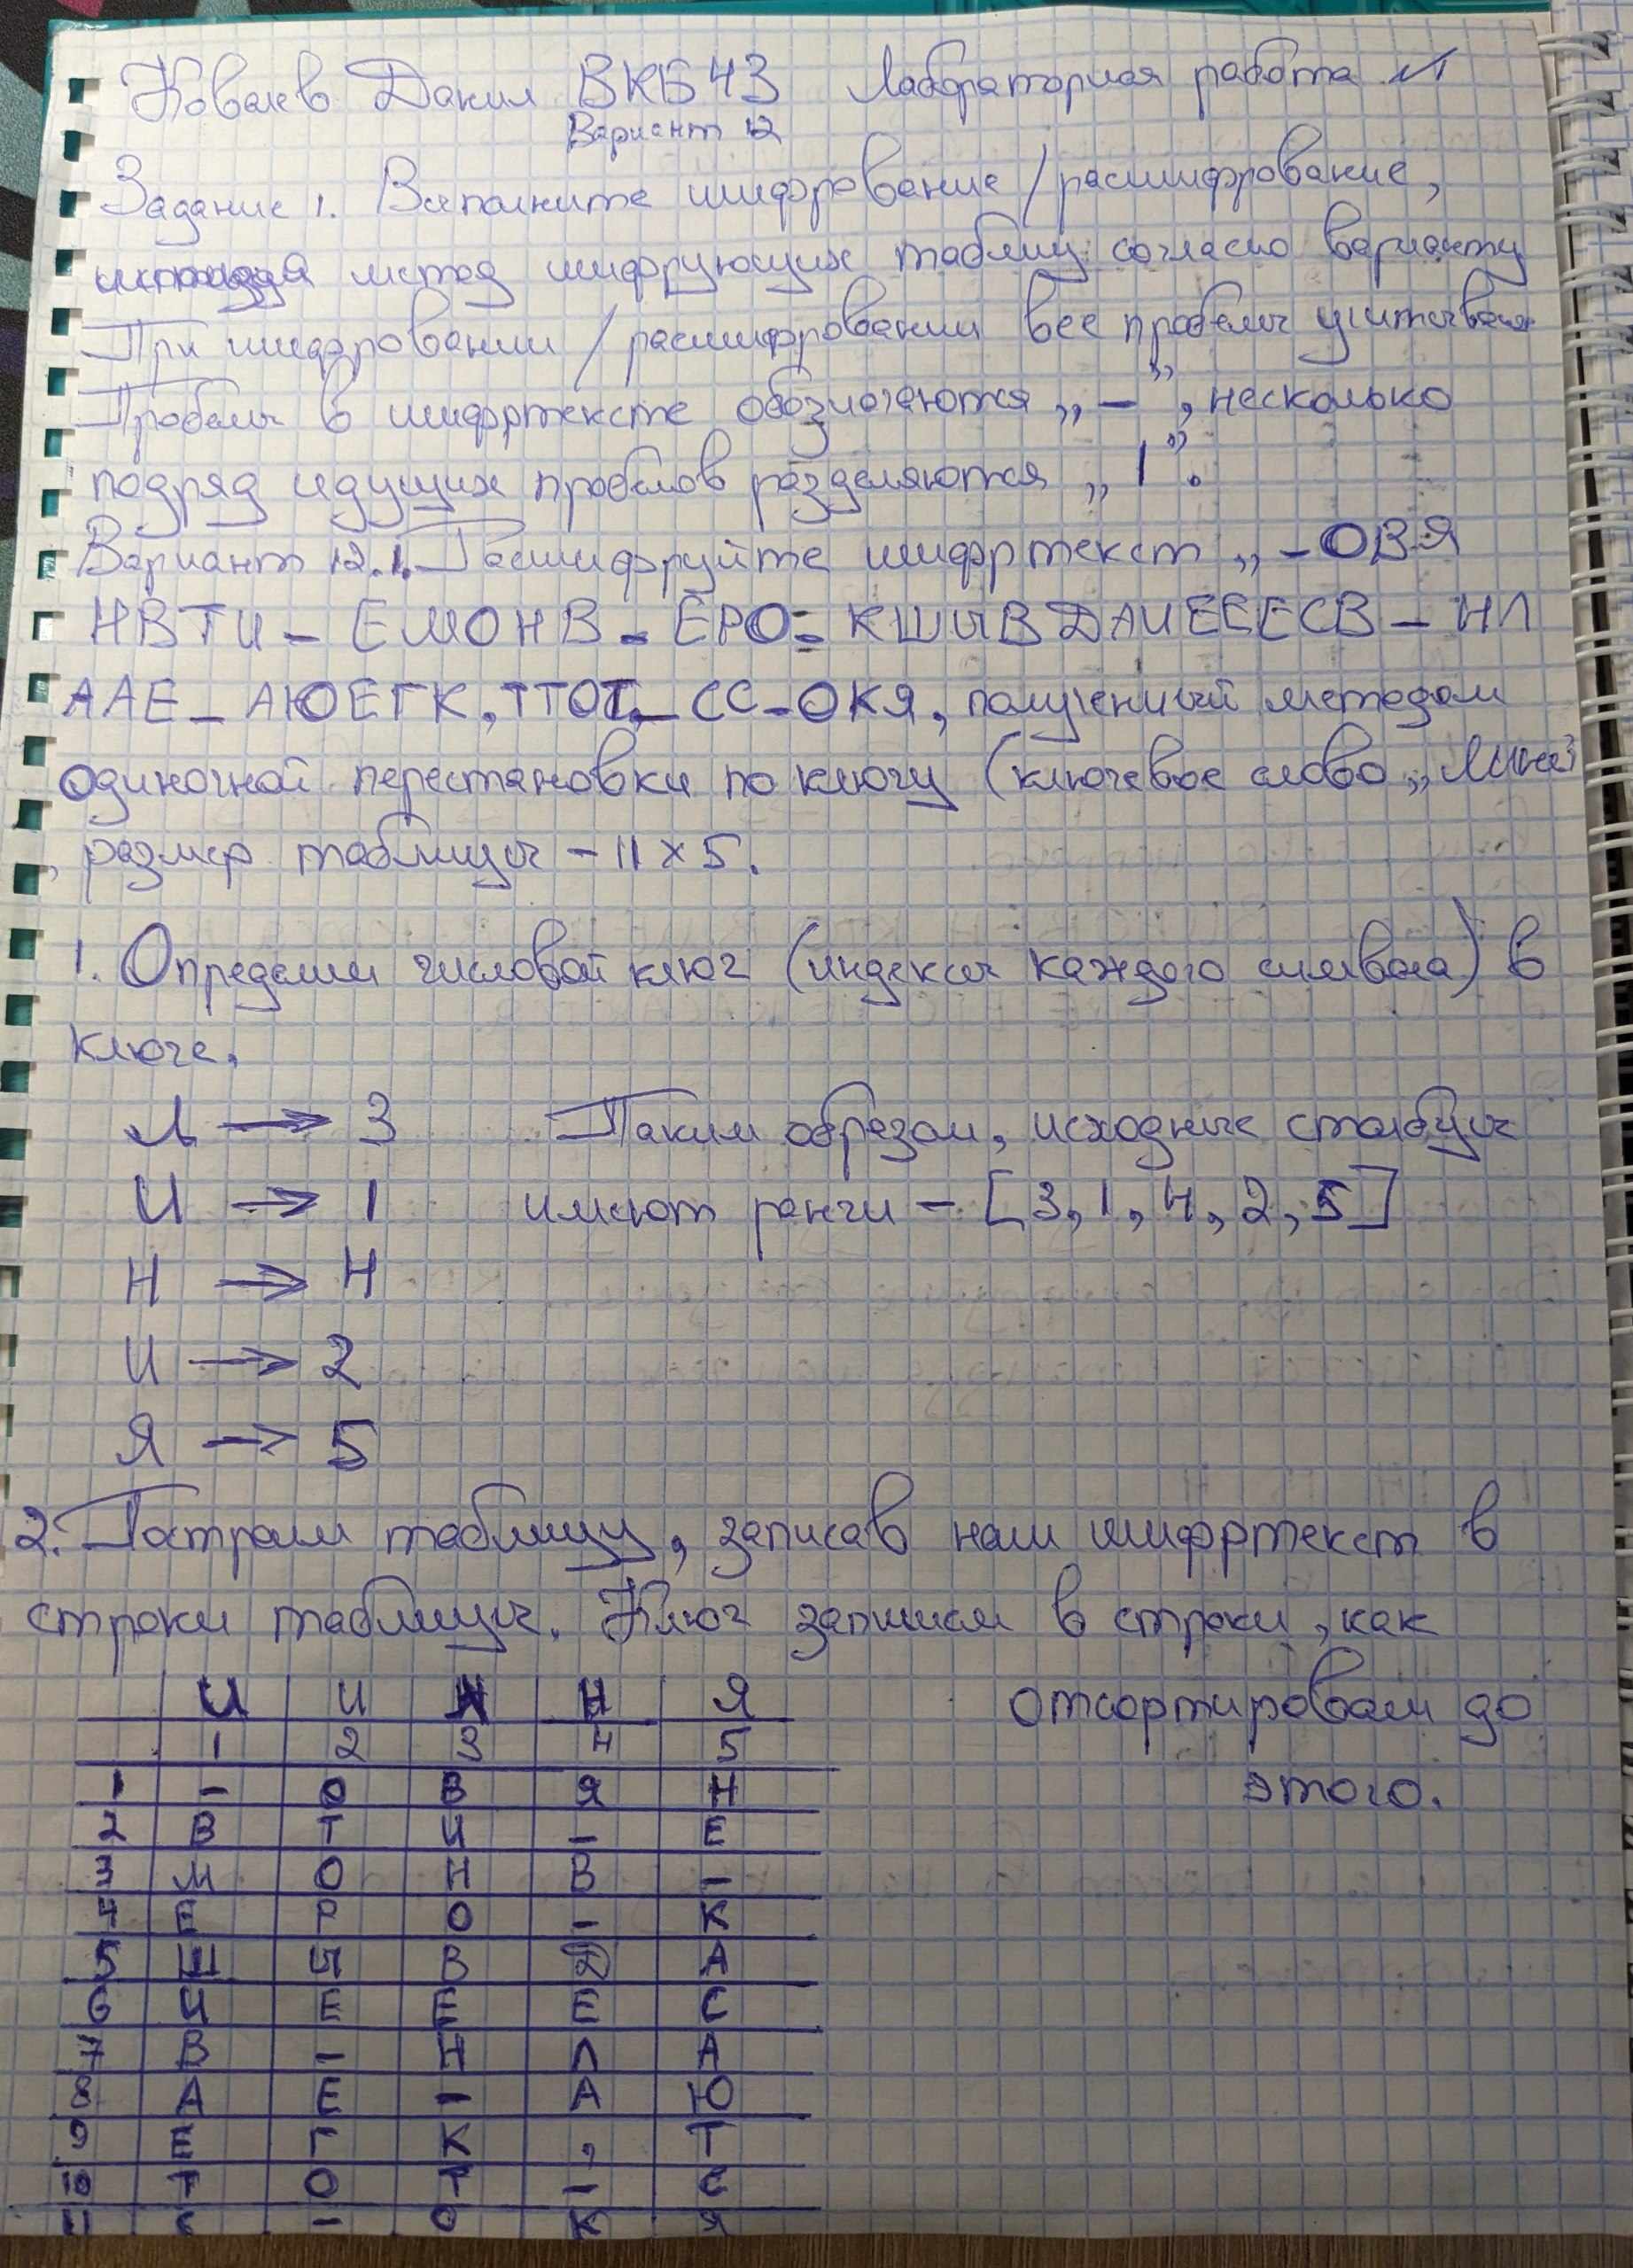 Ковалев Данил ВКБ43 Лабораторная работа №1
Вариант 12
Задание 1. Выполните шифрование/расшифрование,
используя метод шифрующих таблиц согласно варианту
При шифровании/расшифровании все пробелы учитываются
Пробелы в шифртексте обозначаются „–”, несколько
подряд идущих пробелов разделяются „|”.
Вариант 12.1. Расшифруйте шифртекст „–ОВЯ
НВТИ–ЕМОНВ–ЕРО–КШЫВДАИЕЕЕСВ–НЛ
ААЕ–АЮЕГК,ТТОТ–СС–ОКЯ, полученный методом
одиночной перестановки по ключу (ключевое слово „
, размер таблицы – 11×5.
1. Определим числовой ключ (индексы каждого символа) в
ключе.
Л → 3 Таким образом, исходные столбцы
И → 1 имеют ранги – [3, 1, 4, 2, 5]
Н → 4
И → 2
Я → 5
2. Построим таблицу, записав наш шифртекст в
строки таблицы. Ключ запишем в строки, как
И И Н Я отсортировали до
1 2 3 4 5
1 – О В Я Н этого.
2 В Т И – Е
3 М О Н В –
4 Е Р О – К
5 Ш Ы В Д А
6 И Е Е Е С
7 В – Н Л А
8 А Е – А Ю
9 Е Г К , Т
10 Т О Т – С
11 С – О К Я